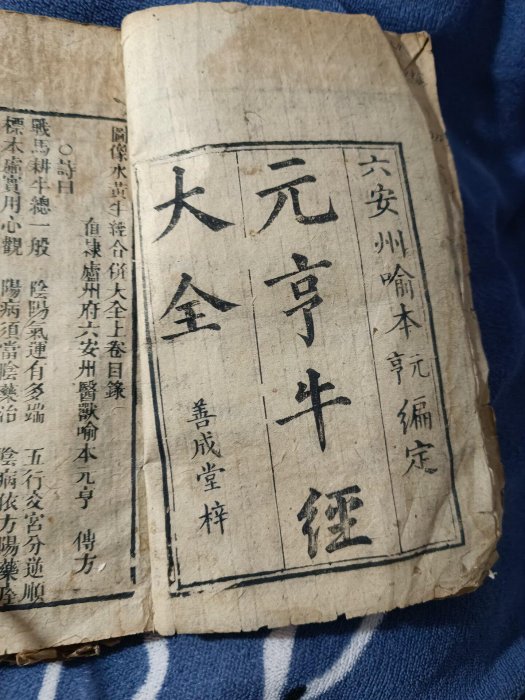 六安州喻本元亨編定
元亨牛經
大全
善成堂梓
圖像水黃牛經合併大全上卷目錄
直隸廬州府六安州醫獸喻本元亨 傳方
○詩曰
戰馬耕牛總一般 陰陽氣運有多端 五行交宮分逆順
標本虛實用心觀 陽病須當陰藥治 陰病依方陽藥